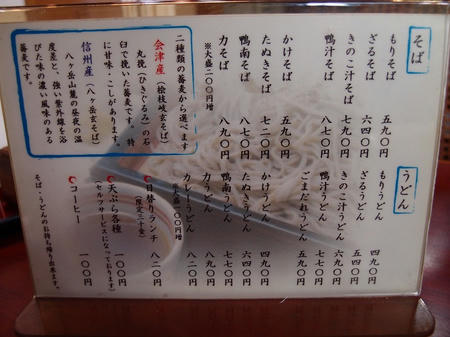 そば
もりそば 五九〇円
ざるそば 六四〇円
きのこ汁そば 七九〇円
鴨汁そば 八七〇円
かけそば 五九〇円
たぬきそば 七二〇円
鴨南そば 八七〇円
力そば 八九〇円
※大盛二〇〇円増
二種類の蕎麦から選べます
会津産(桧枝岐玄そば)
丸挽(ひきぐるみ)の石
臼で挽いた蕎麦です。特
に甘味・こしがあります。
信州産(八ヶ岳玄そば)
八ヶ岳山麓の昼夜の温
度差と、強い紫外線を浴
びた味の濃い風味のある
蕎麦です。
うどん
もりうどん 四九〇円
ざるうどん 五四〇円
きのこ汁うどん 六九〇円
鴨汁うどん 七七〇円
ごまだれうどん 五九〇円
かけうどん 四九〇円
たぬきうどん 六四〇円
鴨南うどん 七七〇円
力うどん 八九〇円
カレーうどん 八二〇円
日替りランチ 八二〇円
(限定三十食)
天ぷら各種 一〇〇円
(セルフサービスになっております)
コーヒー 一〇〇円
そば・うどんのお持ち帰り出来ます。